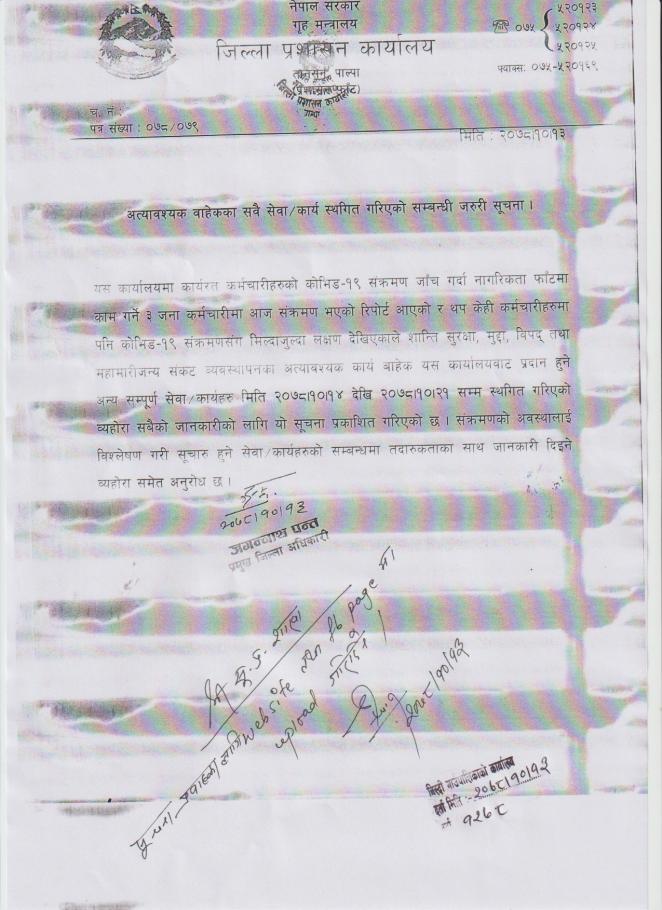 नेपाल सरकार
गृह मन्त्रालय
जिल्ला प्रशासन कार्यालय
पाल्पा
०७५
५२०१२३
५२०१२४
५२०१२५
फ्याक्स: ०७५-५२०१६९
च. नं.:
पत्र संख्या : ०७८/०७९
मिति : २०७८।१०।१३
अत्यावश्यक वाहेकका सवै सेवा/कार्य स्थगित गरिएको सम्बन्धी जरुरी सूचना ।
यस कार्यालयमा कार्यरत कर्मचारीहरुको कोभिड-१९ संक्रमण जाँच गर्दा नागरिकता फाँटमा
काम गर्ने ३ जना कर्मचारीमा आज संक्रमण भएको रिपोर्ट आएको र थप केही कर्मचारीहरुमा
पनि कोभिड-१९ संक्रमणसँग मिल्दाजुल्दा लक्षण देखिएकाले शान्ति सुरक्षा, मुद्दा, विपद् तथा
महामारीजन्य संकट व्यवस्थापनका अत्यावश्यक कार्य बाहेक यस कार्यालयवाट प्रदान हुने
अन्य सम्पूर्ण सेवा/कार्यहरु मिति २०७८।१०।१४ देखि २०७८।१०।२१ सम्म स्थगित गरिएको
व्यहोरा सबैको जानकारीको लागि यो सूचना प्रकाशित गरिएको छ । संक्रमणको अवस्थालाई
विश्लेषण गरी सूचारु हुने सेवा/कार्यहरुको सम्बन्धमा तदारुकताका साथ जानकारी दिइने
व्यहोरा समेत अनुरोध छ ।
२०७८।१०।१३
जगन्नाथ पन्त
प्रमुख जिल्ला अधिकारी
श्री सू.प्र. शाखा
सूचना प्रवाहका लागि website तथा fb page मा
upload गरिदिने ।
२०७८।१०।१३
कार्यालय
दर्ता मिति :- २०७८।१०।१३
१२६८